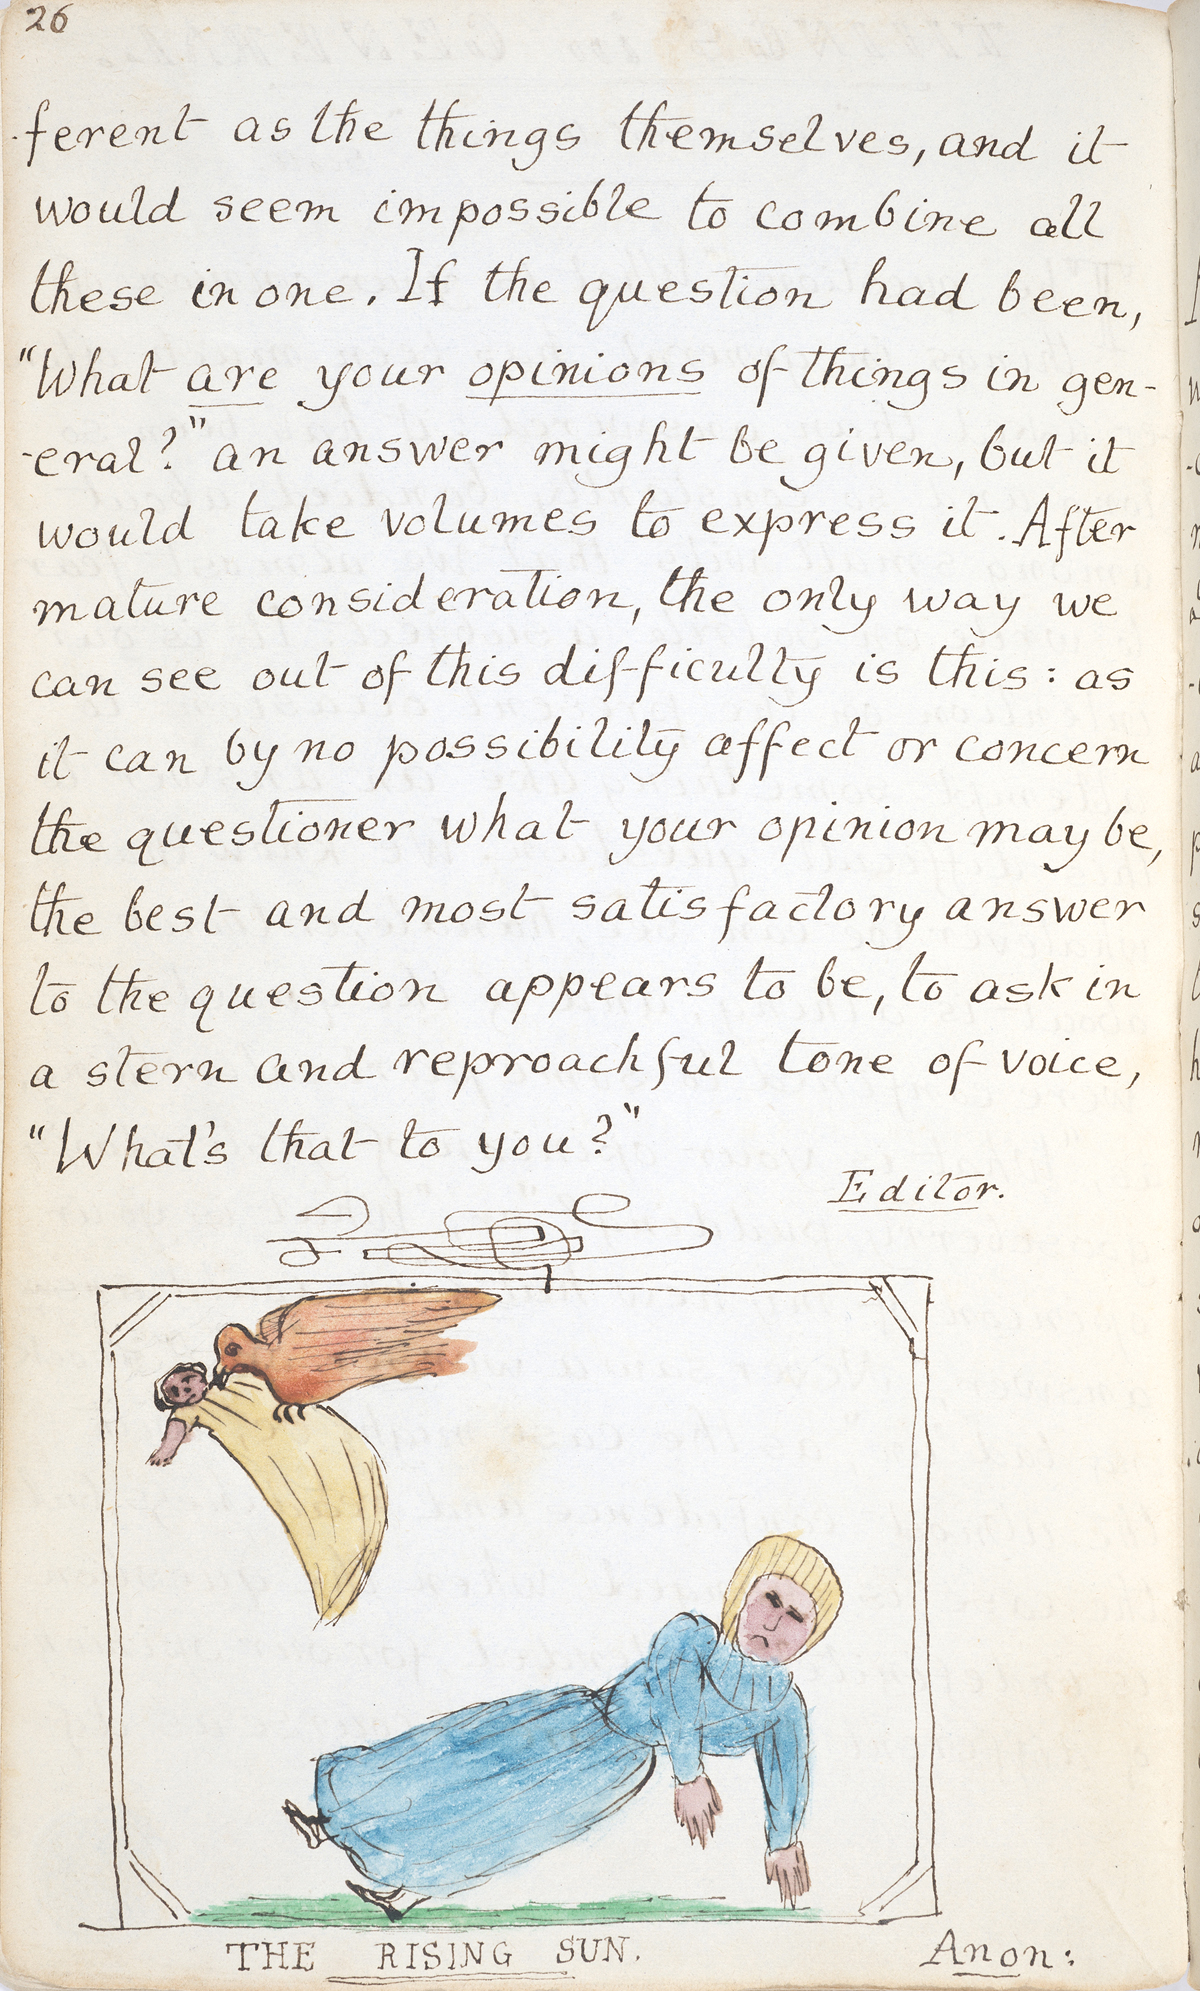 26
-ferent as the things themselves, and it
would seem impossible to combine all
these in one. If the question had been,
"What are your opinions of things in gen-
-eral?" an answer might be given, but it
would take volumes to express it. After
mature consideration, the only way we
can see out of this difficulty is this: as
it can by no possibility affect or concern
the questioner what your opinion may be,
the best and most satisfactory answer
to the question appears to be, to ask in
a stern and reproachful tone of voice,
"What's that to you?"
Editor.
THE RISING SUN.
Anon: